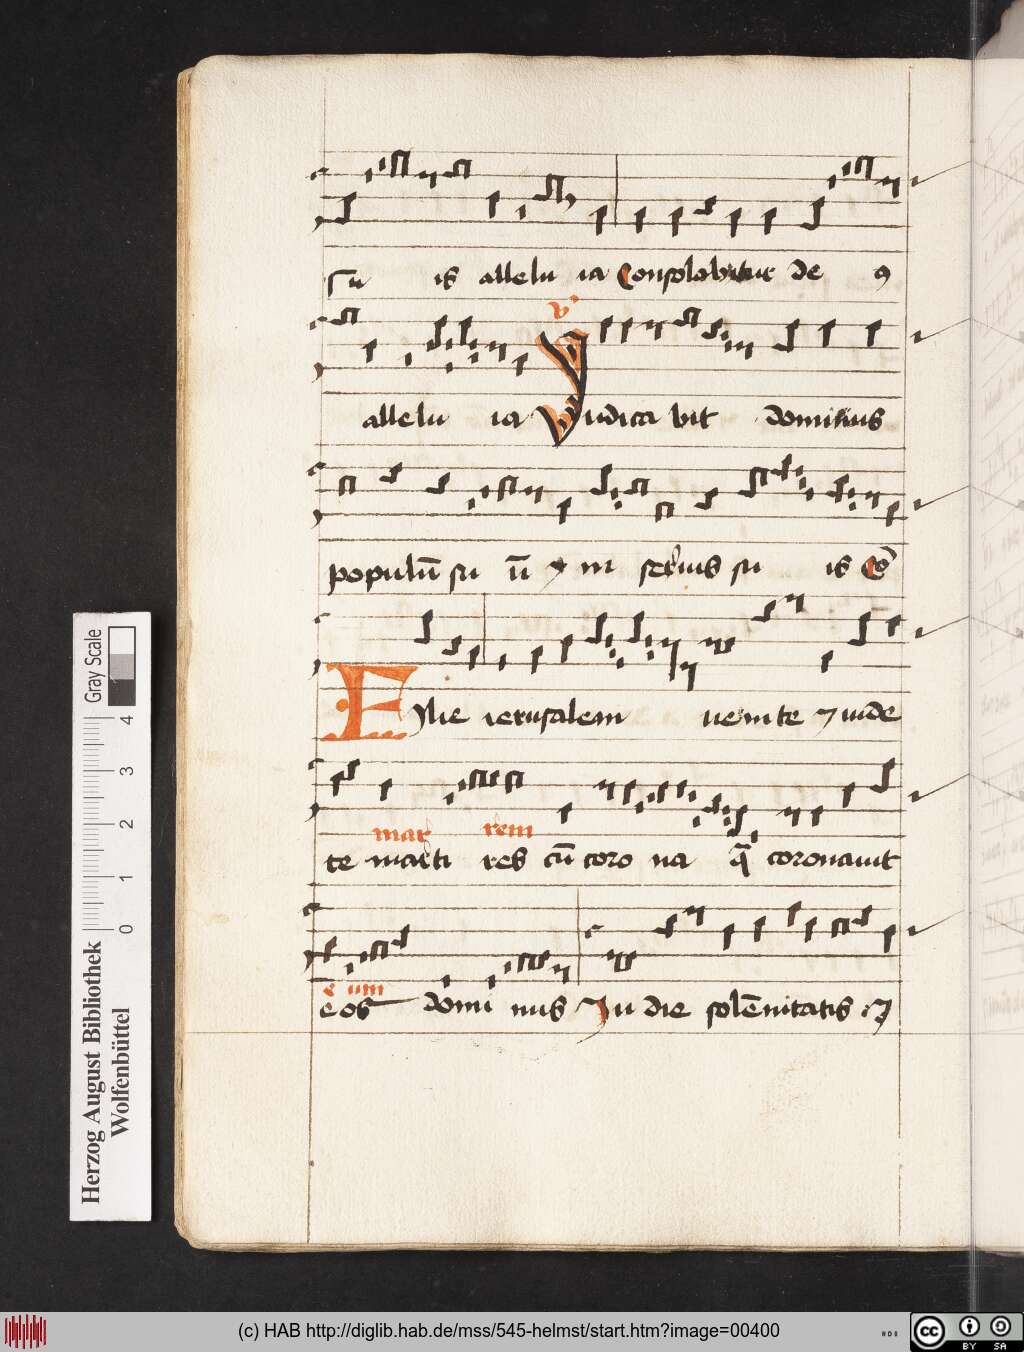 su is allelu ia Consolabitur de 9
vͦ
allelu ia Iudica bit dominus
populū su ū ⁊ in servis su is Cō
Filie ierusalem venite ⁊ vide
mar rem
te marti res cū coro na q̄ coronavit
e um
eos domi nus In die solēnitatis ⁊
Gray Scale
0 1 2 3 4
Herzog August Bibliothek
Wolfenbüttel
(c) HAB http://diglib.hab.de/mss/545-helmst/start.htm?image=00400
cc BY SA